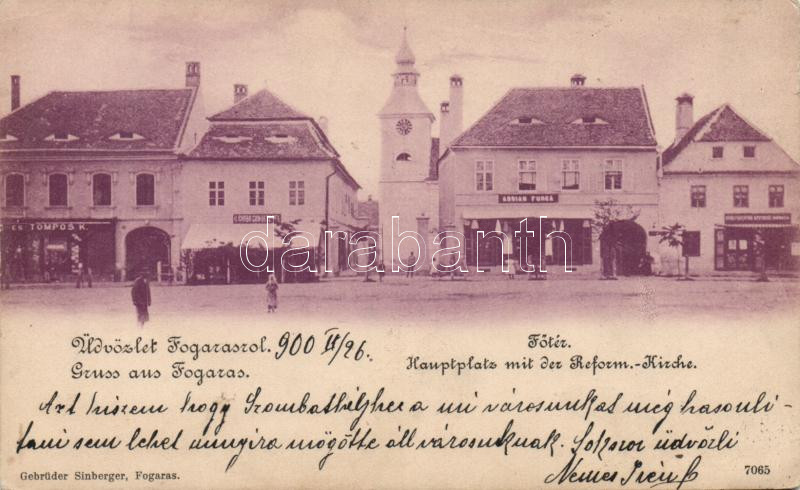 ES TOMPOS K.
ADRIAN FUNGA
darabanth
Üdvözlet Fogarasról. 900 II/26.
Gruss aus Fogaras.
Főtér.
Hauptplatz mit der Reform.-Kirche.
Azt hiszem hogy Szombathelyhez a mi városunkat még hasonlí-
tani sem lehet annyira mögötte áll városunknak. Sokszor üdvözli
Nemes Irén
Gebrüder Sinberger, Fogaras.
7065